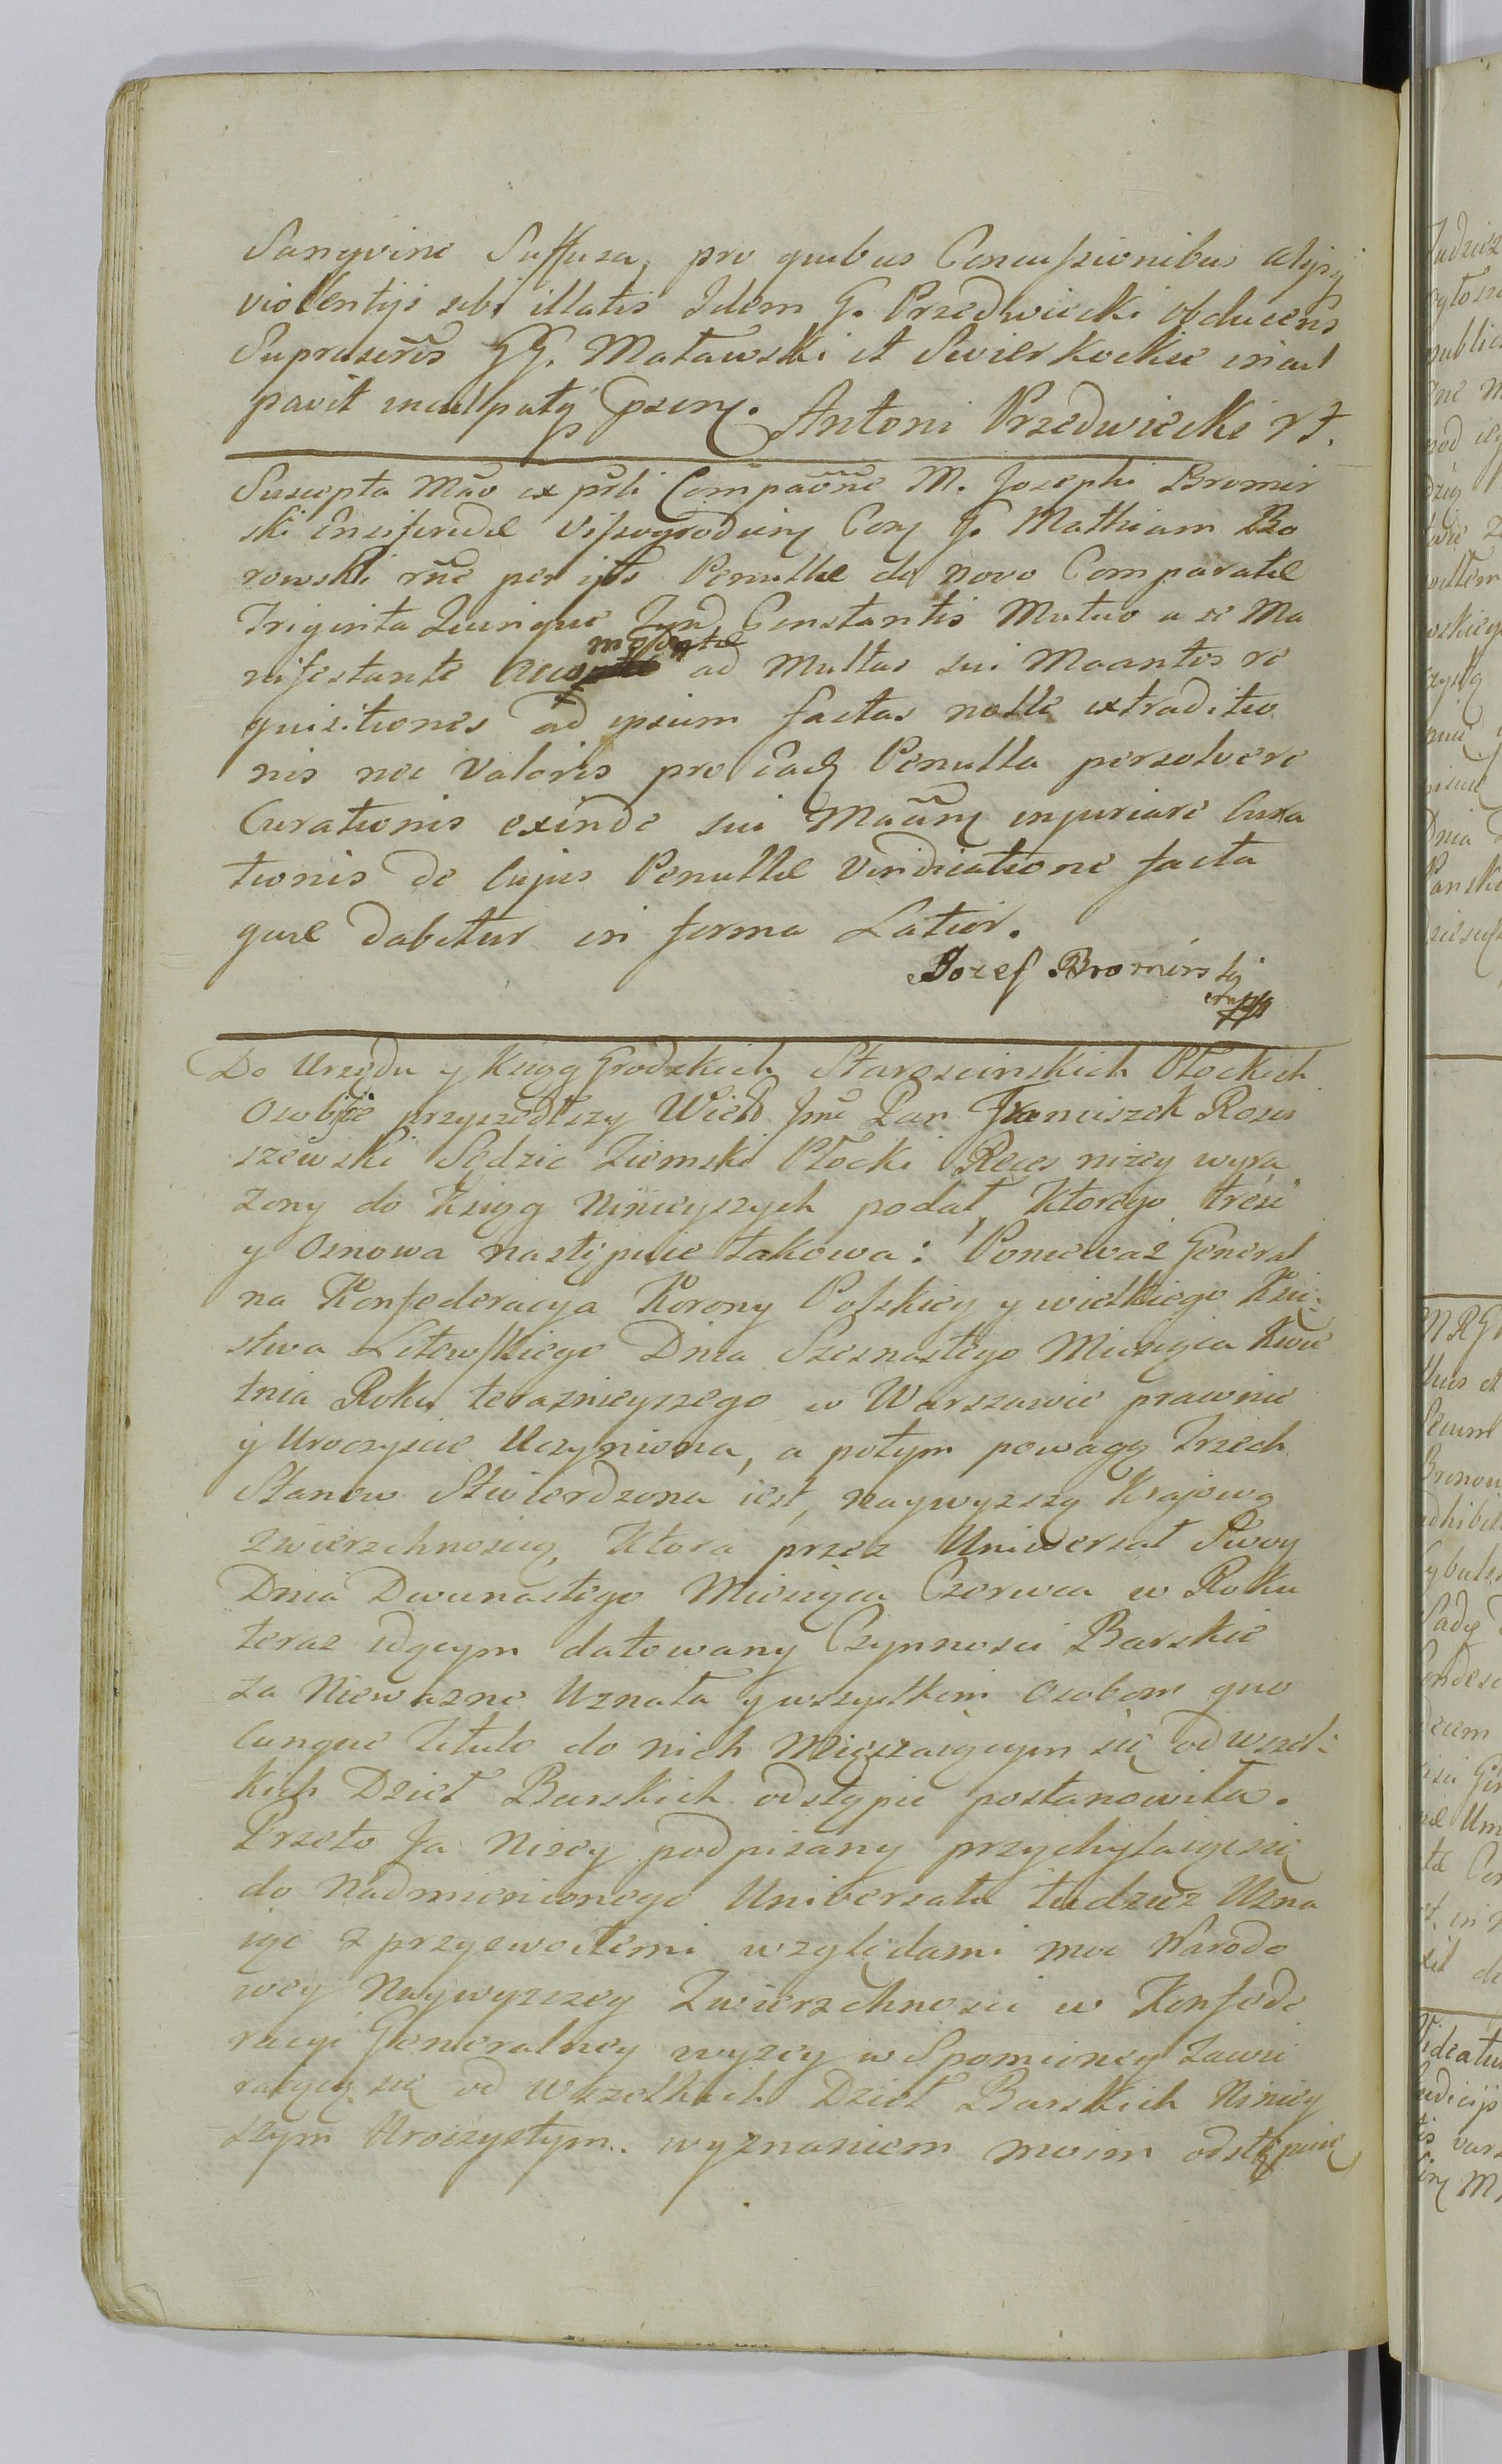 Sangvine Suffusa, pro quibus Concussionibus alijsq
violentijs sibi illatis Idem G. Przedwiecki obducens
Suprascrōs GG. Matawski et Swierkockie incul
pavit inculpatq pzerq. Antoni Przedwiecki rt.
Suscepta Mão ex pūli Compaōñe M. Josephi Bromir
ski Ensiferidae Vissogrodieñ Coñ G. Mathiam Bo
rowski rñe per ijts Penullae de novo Comparatae
Triginta Quinque Constantis Mutuo a se Ma
nifestante ad Multas sui Maantis re
quisitiones ad ipsum factas nolle extraditio
nis nec Valoris pro eadq Penulla persolvere
Curationis exinde sui Maãtq injuriare Cura
tionis de Cujus Penullae Vindicatione facta
quae dabitur in forma Latior.
Jozef Bromirsky
Do Urzędu y Xiąg Grodzkich Starościnskich Płockich
Osobiscie przyszedłszy Wielᵒ Jmć Pan Franciszek Rosci
szewski Sędzic Ziemski Płocki Reces niżey wyra
żony do Xsiąg Ninieyszych podał, Ktorego treść
y Osnowa następuie takowa: Ponieważ General
na Konfederacya Korony Polskiey y wielkiego Xsię
stwa Litewskiego Dnia Szesnastego Miesiąca Kwie
tnia Roku teraznieyszego w Warszawie prawnie
y Uroczyscie Uczyniona, a potym powagą Trzech
Stanow Stwierdzona iest, naywyzszą Krajową
zwierzchnoscią, Ktora przez Uniwersał Swoy
Dnia Dwunastego Miesiąca Czerwca w Roku
teraz idącym datowany Czynnosci Barskie
za Nieważne Uznała y wszystkim Osobom quo
cunque titulo do nich Mięszaiącym się od wszel-
kich Dzieł Barskich odstąpic postanowiła.
Przeto Ja Niżey podpisany przychylaiąc się
do Nadmienionego Uniwersału tudzież Uzna
iąc z przyzwoitemi względami moc Narodo
wey Naywyzszey Zwierzchnosci w Konfede
racyi Generalney wyzey w Spomioney zawie
raiącą się od wszelkich Dzieł Barskich Niniey
szym Uroczystym.. wyznaniem moim odstępuię